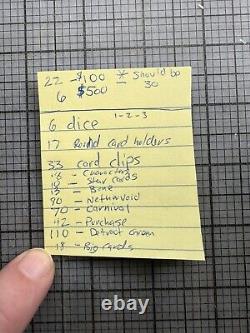 22 - $100 * Should be
6 $500 - 30
1-2-3
6 dice
17 Round card holders
33 card clips
18 - Characters
18 - Star Cards
13 - Bane
90 - Netherwold
70 - Carnival
42 - Purchase
110 - Detroit Green
18 - Big Cards